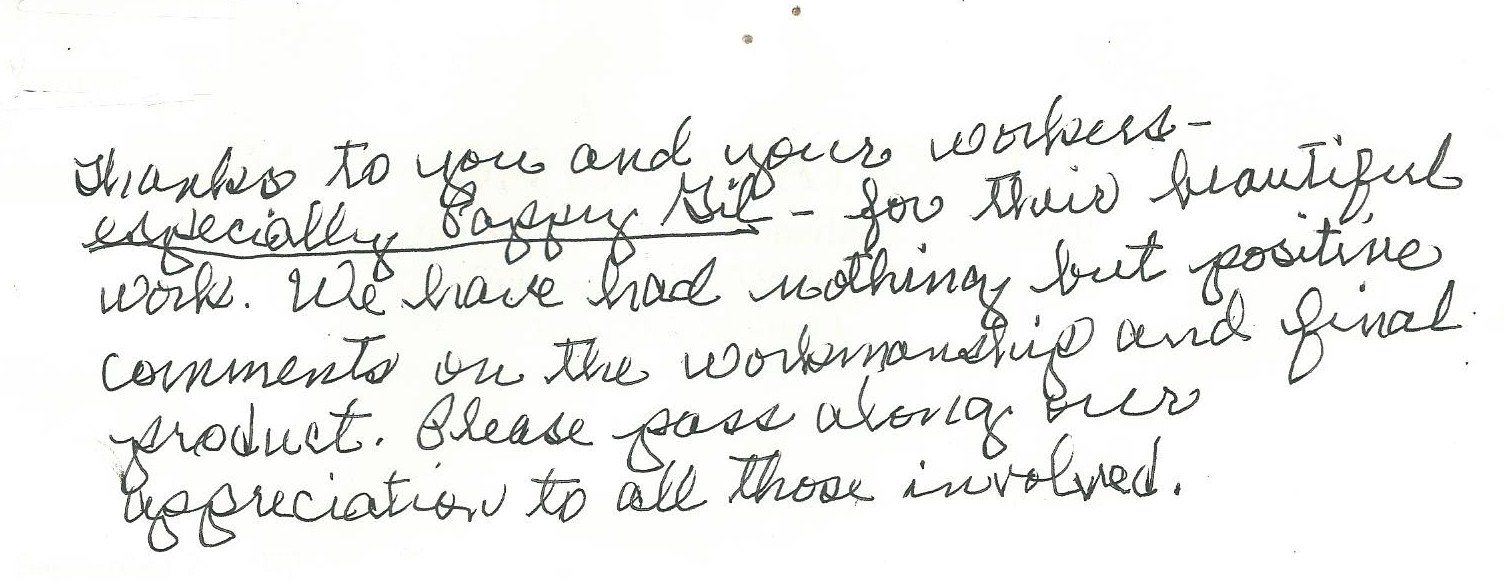 Thanks to you and your workers-
especially Pappy Gil - for their beautiful
work. We have had nothing but positive
comments on the workmanship and final
product. Please pass along our
appreciation to all those involved.